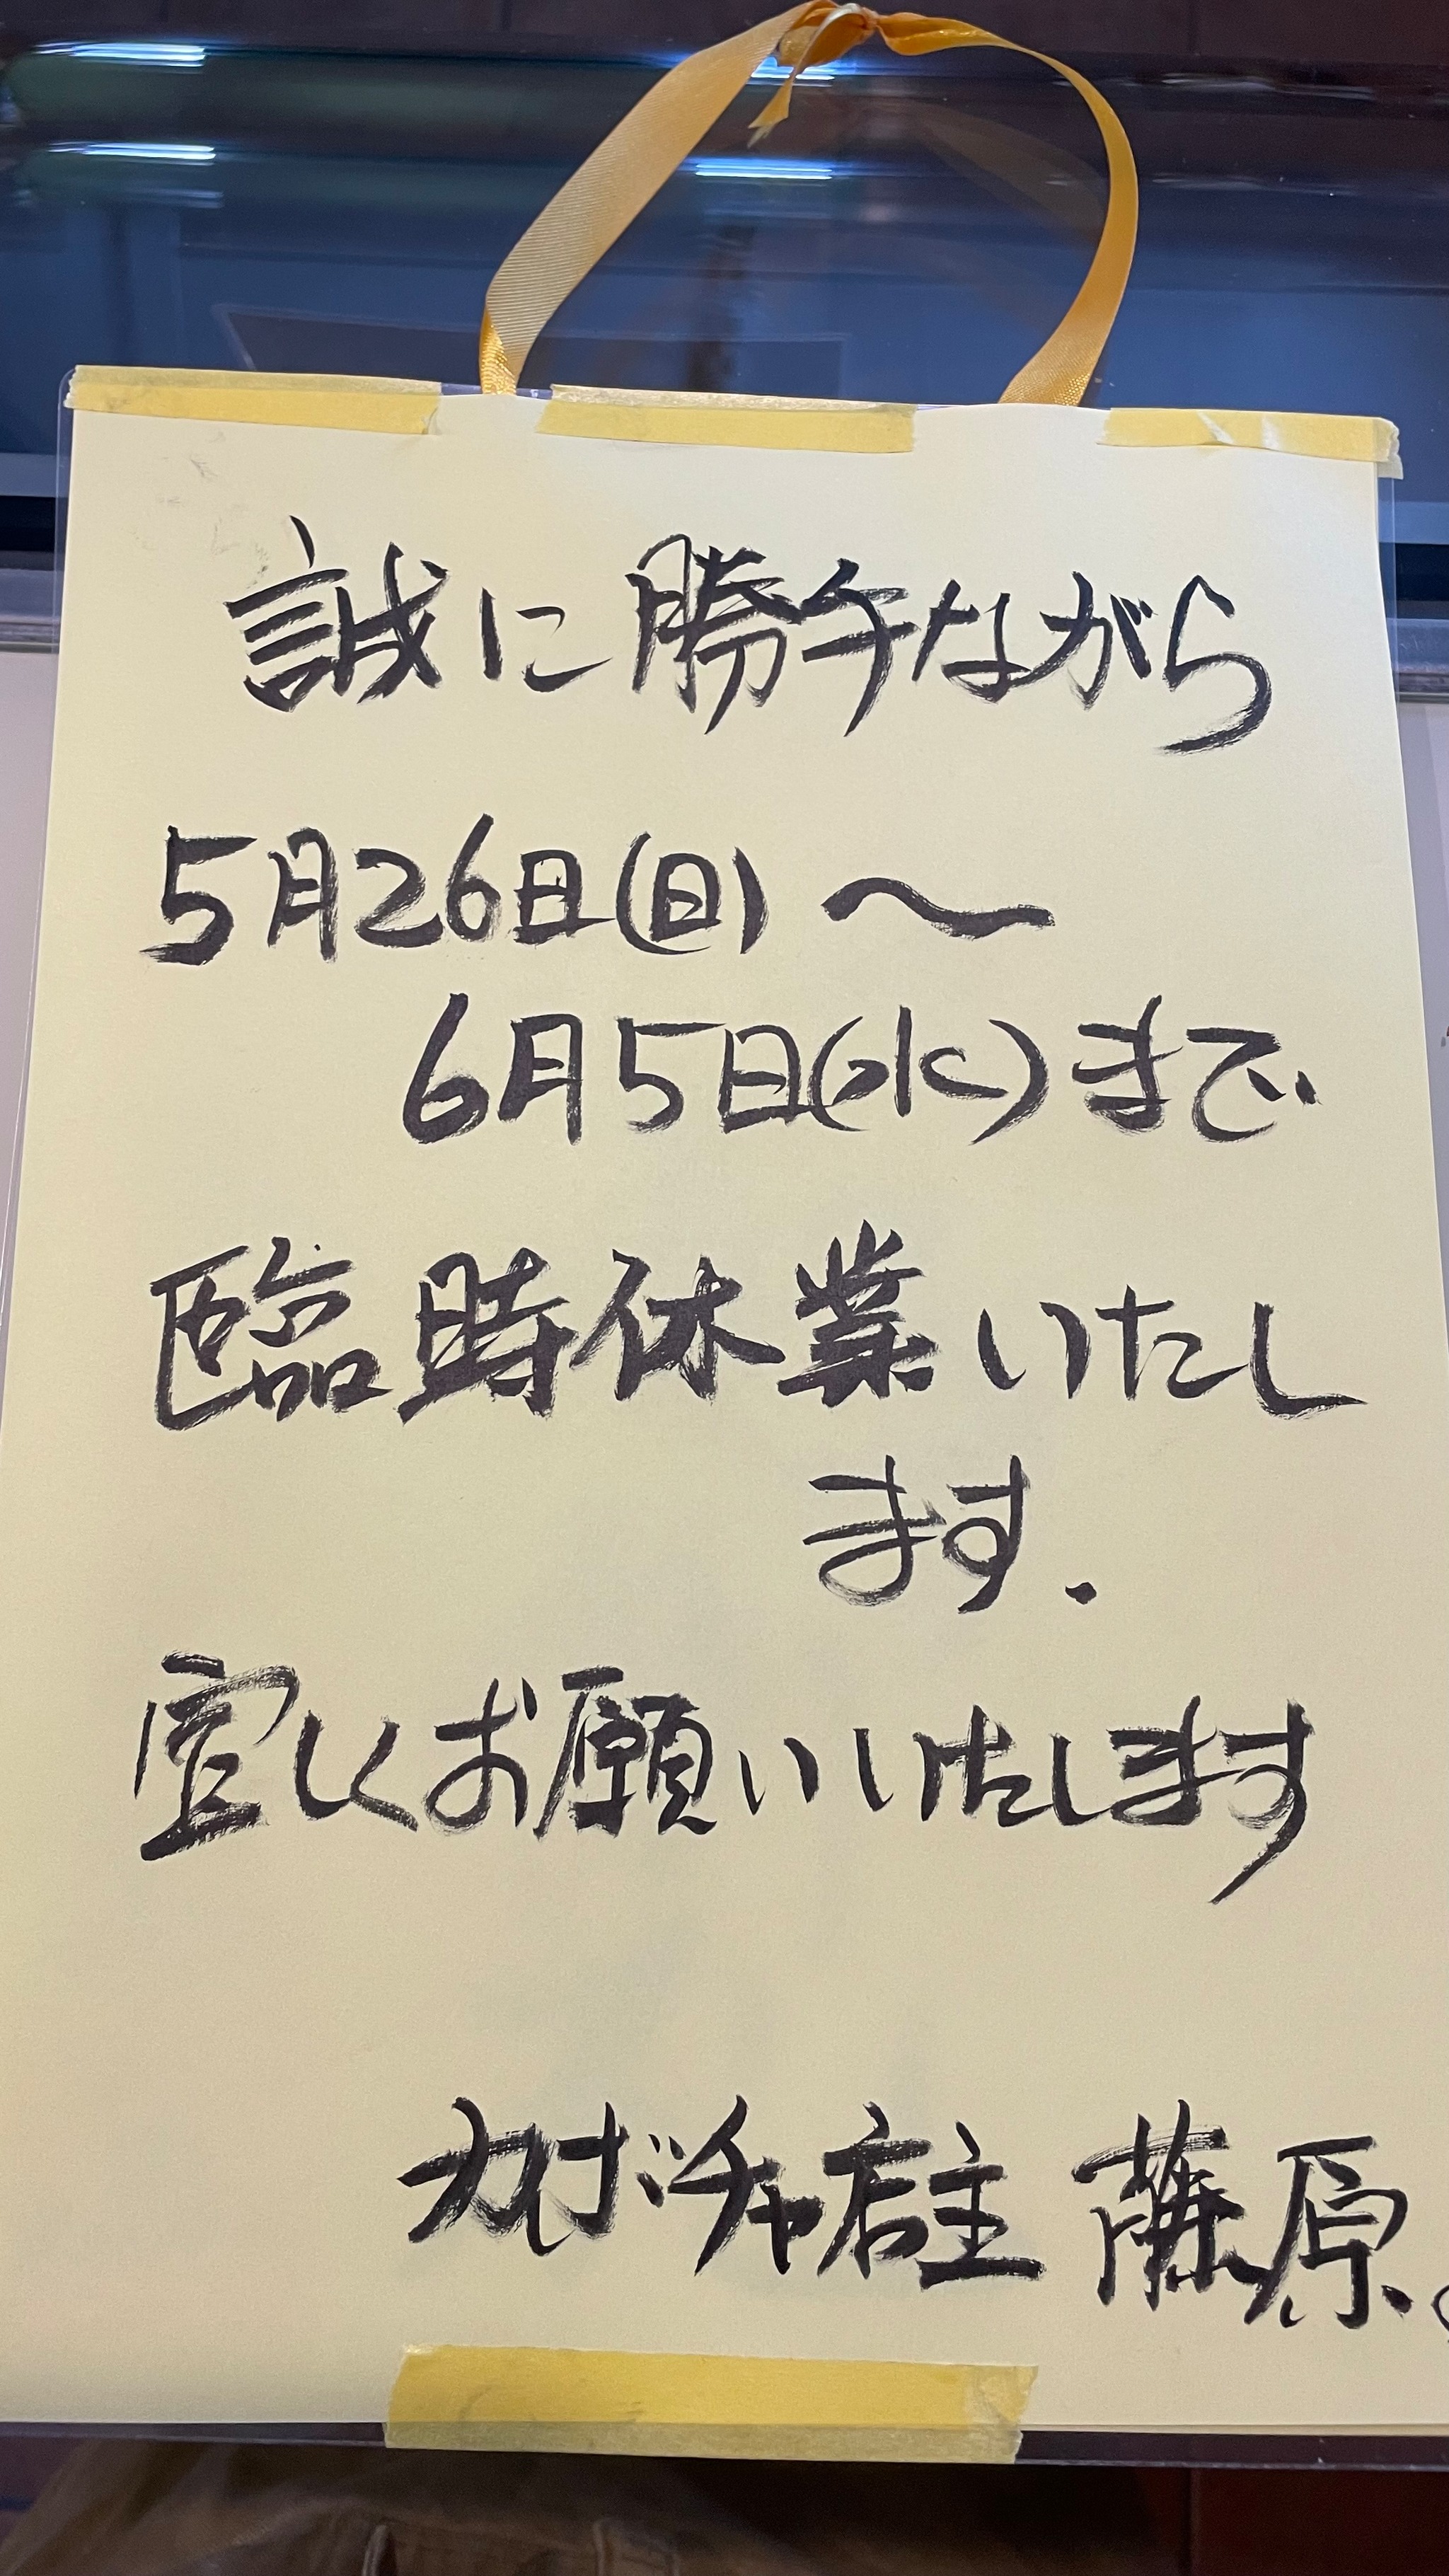 誠に勝手ながら
5月26日(日)〜
6月5日(水)まで
臨時休業いたし
ます.
宜しくお願いいたします
カボチャ店主 藤原。